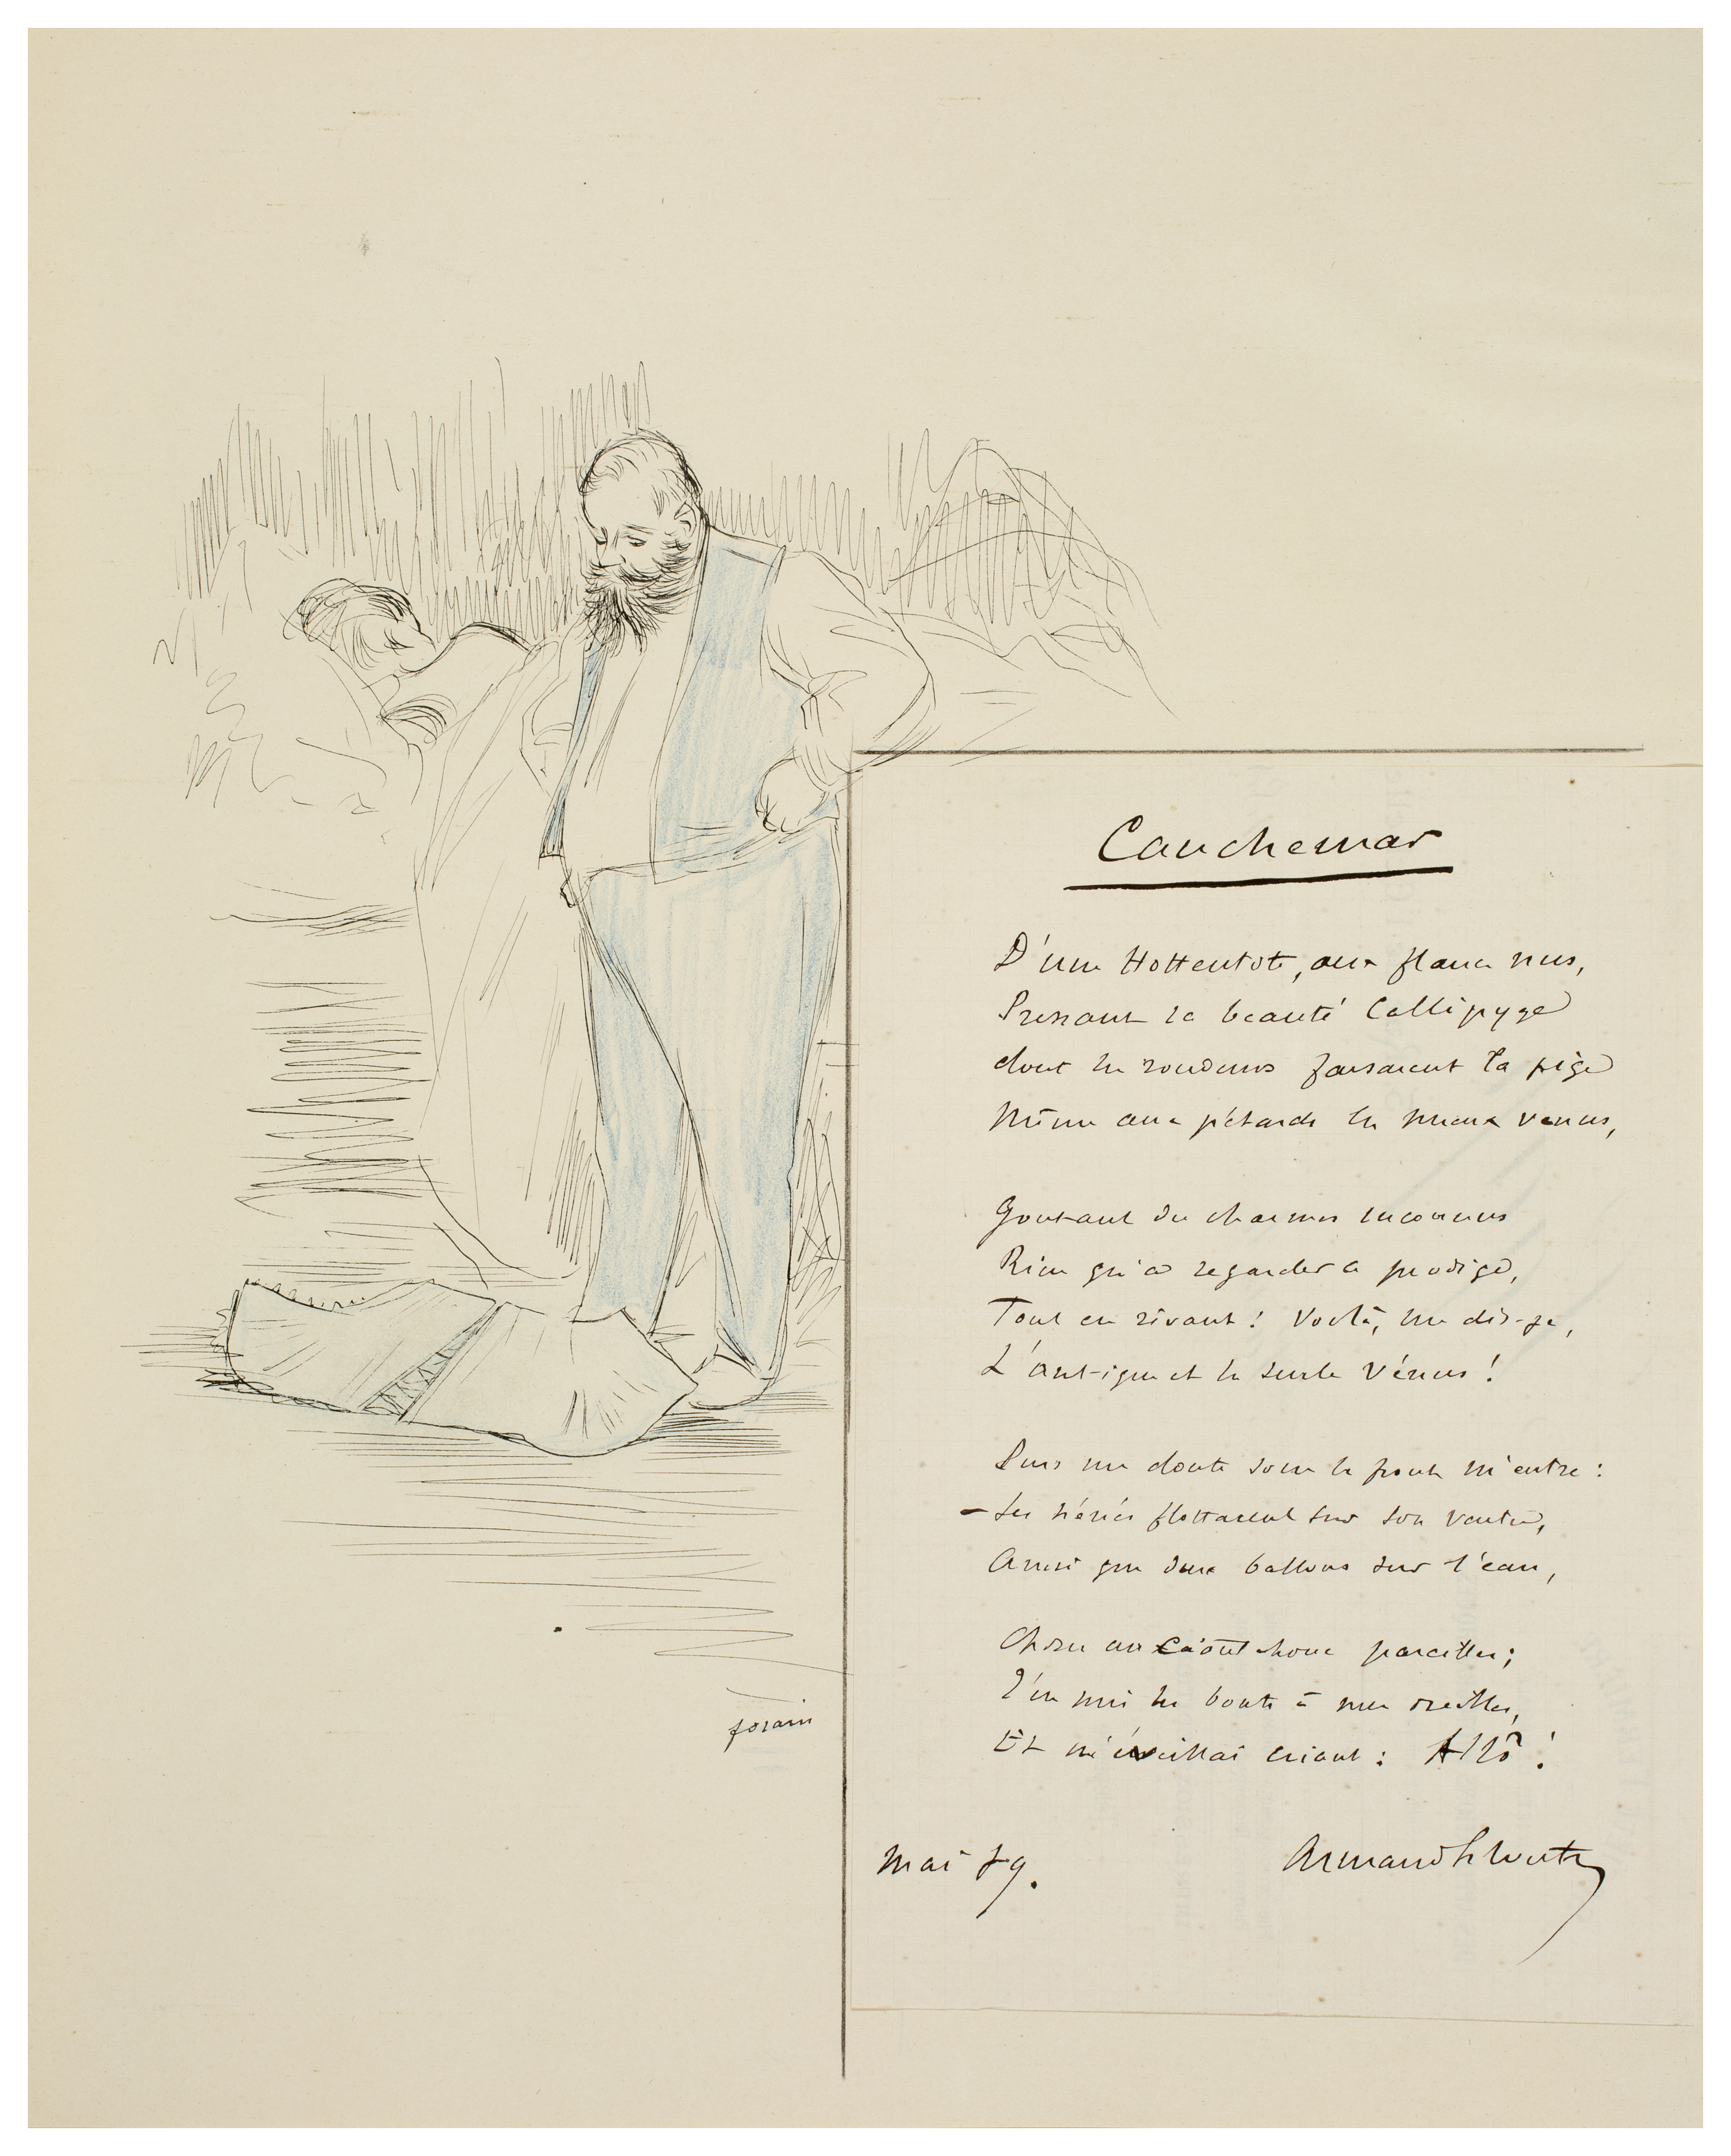 Cauchemar
D'une Hottentote, aux flancs nus,
Pressant la beauté Callipyge
dont les rondeurs faisaient la pige
Même aux pétards les mieux venus,
Goutant des charmes inconnus
Rien qu'à regarder ce prodige,
Tout en rêvant! Voilà, me dis-je,
L'antique et la seule Vénus!
Puis un doute sous le front m'entre:
- Ses nénés flottaient sur son ventre,
Ainsi que deux ballons sur l'eau,
Chose au Caoutchouc pareilles;
J'en mis les bouts à mes oreilles,
Et m'éveillai criant: Allô!
forain
Mai 89.
Armand